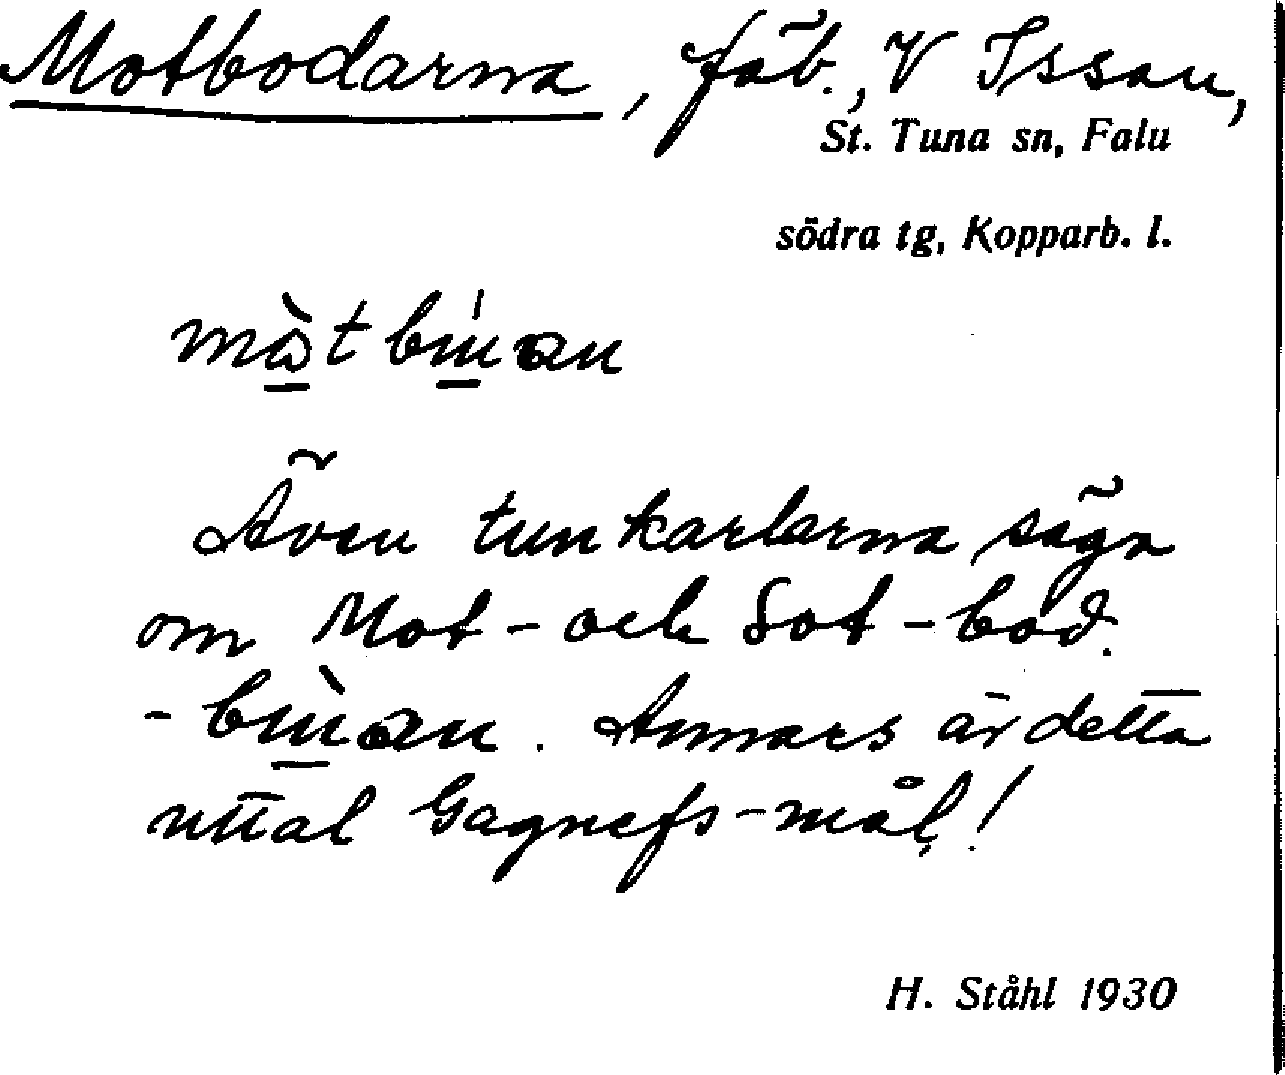 Motbodarna, fäb., V Issau,
St. Tuna sn, Falu
södra tg, Kopparb. l.
Även tunkarlarna säga
om Mot- och Sot-bod.
Annars är detta
uttal Gagnefs-mål!
H. Ståhl 1930